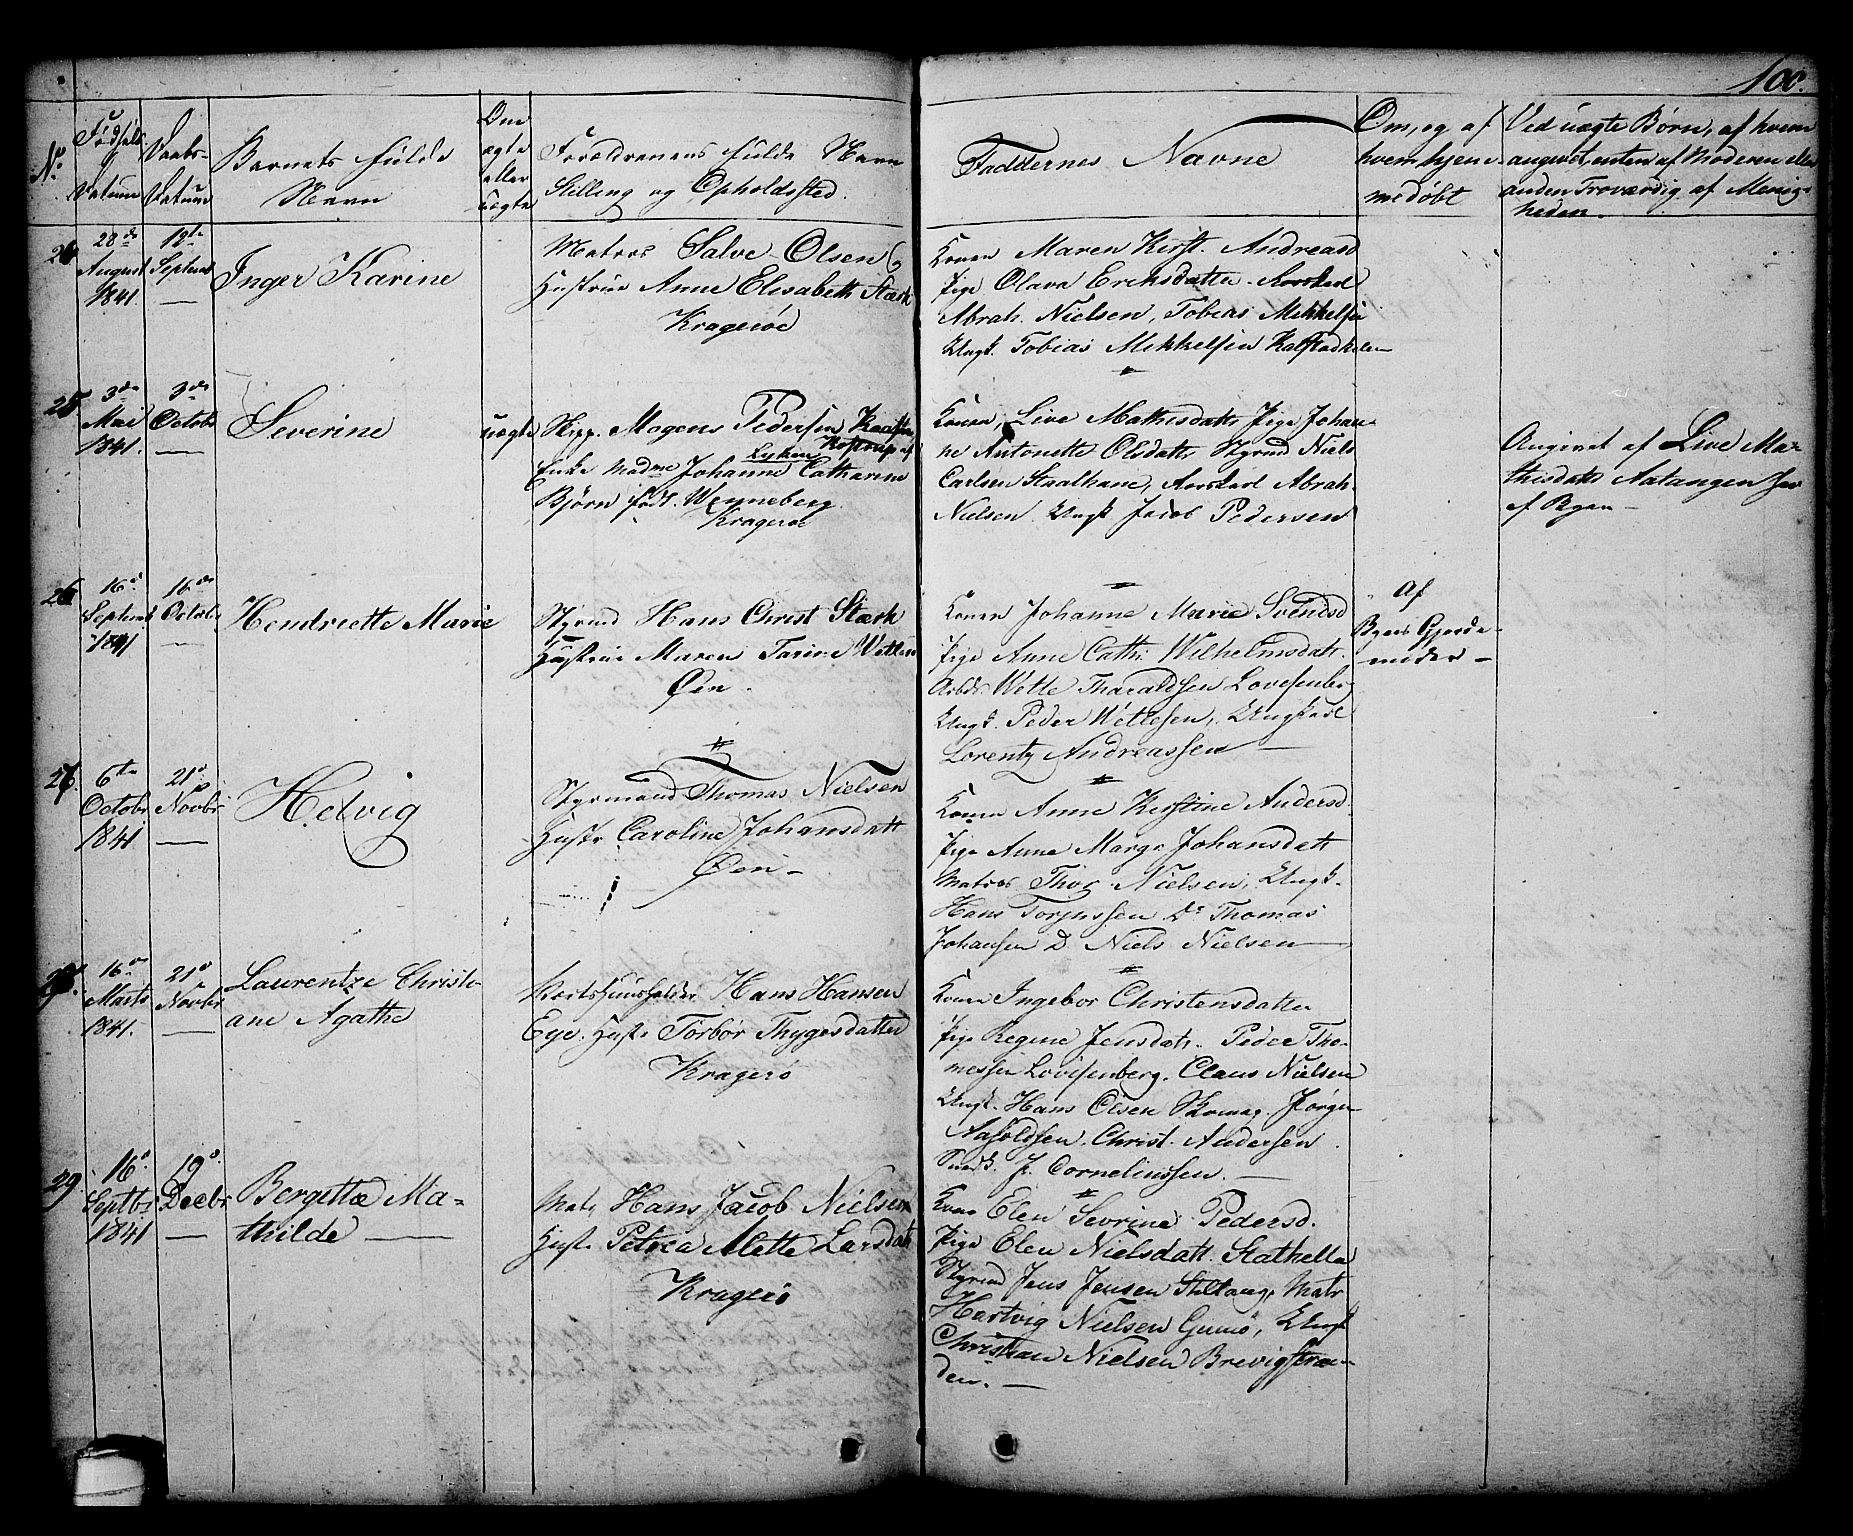 100.
No
Fødsels
Datum
Daabs-
Datum
Barnets fulde
Navn
Om
ægte
eller
uægte
Forældrenes fulde Navn
Stilling og Opholdssted.
Faddernes Navne
Om, og af
hvem hjem-
medøbt
Ved uægte Børn, af hvem
angivet, enten af Moderen eller
anden Troværdig af Menig-
heden.
24
28de
August
1841.
12te
Septemb
Inger Karine
Matros Salve Olsen og
Hustrue Anne Elisabeth Stærk
Kragerøe
Konen Maren Kirst. Andreasd
Pige Olava Erichsdatter
Abrah. Nielsen, Tobias Mikkelsen
Ungk. Tobias Mikkelsen
25
3de
Mai
1841.
3de
Octobr
Severine
uægte
Skipp. Mogens Pedersen
Enke Madme Johanne Catharine
Bjørn født Wenneberg
Kragerøe
Konen Live Mathisdatt. Pige Johan-
ne Antonette Olsdatt. Styrmd Niels
Carlsen Staalhane, Abrah.
Nielsen Ungk Jacob Pedersen
Angivet af Live Ma-
thisdatt. Aatangen
af Byen-
26
16d
Septemb
1841
16de
Octobr
Hendreette Marie
Styrmd Hans Christ Stærk
Hustrue Maren Tarine
Øen.
Konen Johanne Marie Svendsd
Pige Anne Cathr. Wilhelmsdatt.
Arbdr Wette Tharaldsen Lovisenberg
Ungk. Peder Wettesen, Ungkarl
Lorentz Andreassen
Af
Byens Gjorde-
moder-
27.
6te
Octobr
1841
21d
Novbr
Helvig
Styrmand Thomas Nielsen
Hustr Caroline Johansdatt
Øen-
Konen Anne Kirstine Andersd.
Pige Anne Margr. Johansdatt
Matros Thor Nielsen, Ungk.
Hans Torjussen Do Thomas
Johansen D. Niels Nielsen
28.
16de
Marts
1841.
21d
Novbr
Laurentze Christi-
ane Agathe
Værtshuusholder Hans Hansen
Eye. Hustr Torbor Thygesdatter
Kragerø
Konen Ingebor Christensdatter
Pige Regine Jensdatt. Peder Tho-
messen Lovisenberg. Claus Nielsen
Ungk. Hans Olsen Skomag. Jørgen
Christ. Andersen
Snedk. J. Corneliussen.
29
16d.
Septbr
1841
19d.
Decbr
Bergette Ma-
thilde
Matr. Hans Jacob Nielsen
Hustr Petrea Mette Larsdatt
Kragerø
Kone Elen Sevrine Pedersd.
Pige Elen Nielsdatt. Stathelle
Styrmd Jens Jensen Matr
Hartvig Nielsen Gumø, Ungk
Christian Nielsen Brevigstran-
den.